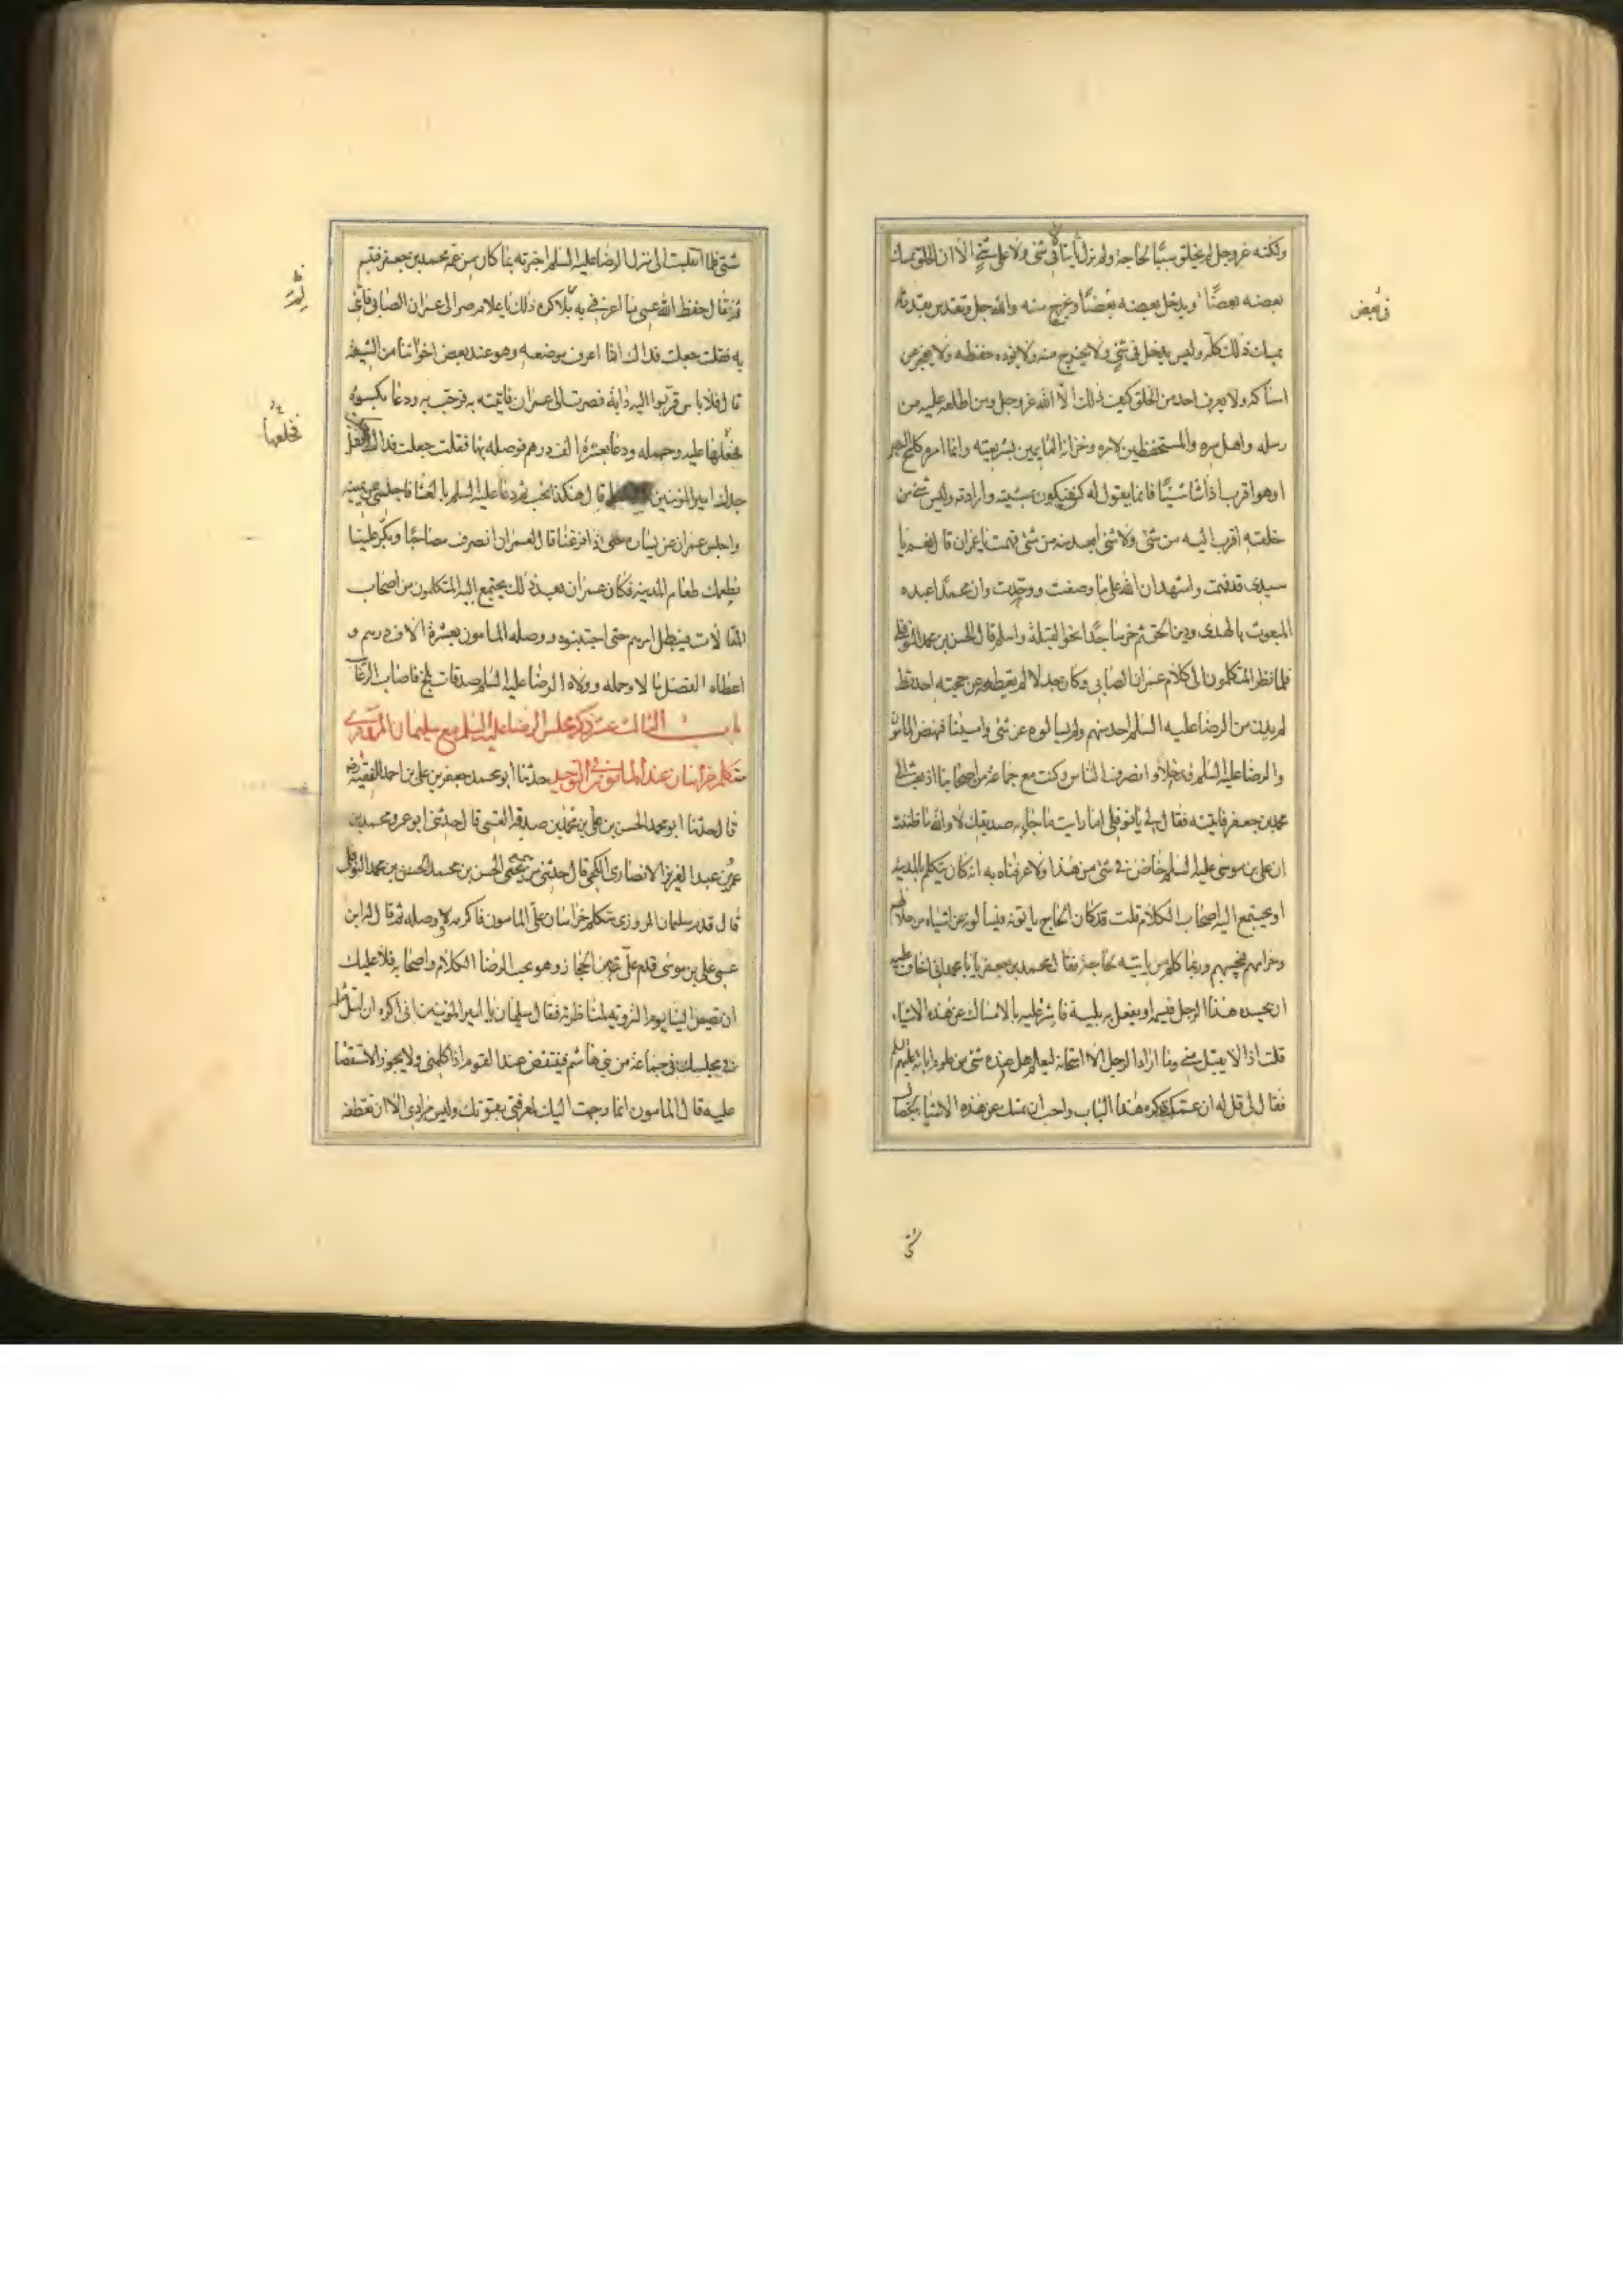 ولكنه عز وجل لم يخلق شيئا لحاجة ولم يزل ثابتا لا في شئ ولا على شئ الا ان الخلق يمسك
بعضه بعضا ويدخل بعضه بعضا ويخرج منه والله جل وتقدس بقدرته
في بعض
يمسك ذلك كله وليس يدخل في شئ ولا يخرج منه ولا يؤده حفظه ولا يعجز عن
امساكه ولا يعرف احد من الخلق كيف ذلك الا الله عز وجل ومن اطلعه عليه من
رسله واهل سره والمستحفظين لامره وخزانه القايمين بشريعته وانما امره كلمح البصر
او هو اقرب اذا شا شيئا فانما يقول له كن فيكون بمشيته وارادته وليس شئ من
خلقه اقرب اليه من شئ ولا شئ ابعد منه من شئ فهمت يا عمران قال نعم يا
سيدى قد فهمت واشهد ان الله على ما وصفت ووحدت وان محمدا عبده
المبعوث بالهدى ودين الحق ثم خر ساجدا نحو القبلة واسلم قال الحسن بن محمد النوفلي
فلما نظر المتكلمون الى كلام عمران الصابي وكان جدلا لم يقطعه عن حجته احد قط
لم يدن من الرضا عليه السلم احد منهم ولم يسالوه عن شئ وامسينا فنهض المامون
والرضا عليه السلم فدخلا وانصرف الناس وكنت مع جماعة من اصحابنا اذ بعث الى
محمد بن جعفر فاتيته فقال لي يا نوفلي اما رايت ما جا به صديقك لا والله ما ظننت
ان علي بن موسى عليه السلم خاض في شئ من هذا ولا عرفناه به انه كان يتكلم بالمدينه
او يجتمع اليه اصحاب الكلام قلت قد كان الحاج ياتونه فيسالونه عن اشياء من حلالهم
وحرامهم فيجيبهم وربما كلم من ياتيه بحاجة فقال محمد بن جعفر يا با محمد اني اخاف عليه
ان يحسده هذا الرجل فيسمه او يفعل به بلية فاشر عليه بالامساك عن هذه الاشياء
قلت اذا لا يقبل مني وما اراد الرجل الا امتحانه ليعلم هل عنده شئ من علوم ابائه عليهم السلم
فقال لى قل له ان عمك قد كره هذا الباب واحب ان تمسك عن هذه الاشيا لخصال
شتى
شتى فلما انقلبت الى منزل الرضا عليه السلم اخبرته بما كان من عمه محمد بن جعفر فتبسم
ثم قال حفظ الله عمى ما اعرفني به لم كره ذلك يا غلام صر الى عمران الصابي فاتني
به فقلت جعلت فداك انا اعرف موضعه وهو عند بعض اخواننا من الشيعة
قال فلا باس قربوا اليه دابة فصرت الى عمران فاتيته به فرحب به ودعا بكسوة
فخلعها
فجعلها عليه وحمله ودعا بعشرة الف درهم فوصله بها فقلت جعلت فداك
جدك امير المؤمنين قال هكذا نحب ثم دعا عليه السلم بالعشا فاجلسني عن يمينه
واجلس عمران عن يساره حتى اذا فرغنا قال لعمران انصرف مصاحبا وبكر علينا
نطعمك طعام المدينة فكان عمران بعد ذلك يجتمع اليه المتكلمون من اصحاب
المقالات فيبطل امرهم حتى اجتنبوه ووصله المامون بعشرة الاف درهم و
اعطاه الفضل مالا وحمله وولاه الرضا عليه السلم صدقات بلخ فاصاب الرغائب
باب الثالث عشر ذكر مجلس الرضا عليه السلم مع سليمان المروزي
متكلم خراسان عند المامون في التوحيد حدثنا ابو محمد جعفر بن علي بن احمد الفقيه رضه
قال حدثنا ابو محمد الحسن بن علي بن محمد بن صدقه القمي قال حدثني ابو عمرو محمد بن
عمر بن عبد العزيز الانصارى الكجي قال حدثني من سمع الحسن بن محمد النوفلي
قال قدم سليمان المروزى متكلم خراسان على المامون فاكرمه ووصله ثم قال له ان ابن
عمى علي بن موسى قدم علي من الحجاز وهو يحب الكلام واصحابه فلا عليك
ان تصير الينا يوم التروية لمناظرته فقال سليمان يا امير المؤمنين انى اكره ان اسئل مثله
في مجلسك في جماعة من بني هاشم فينتقض عند القوم اذا كلمني ولا يجوز الاستقصا
عليه قال المامون انما وجهت اليك لمعرفتي بقوتك وليس مرادى الا ان تقطعه